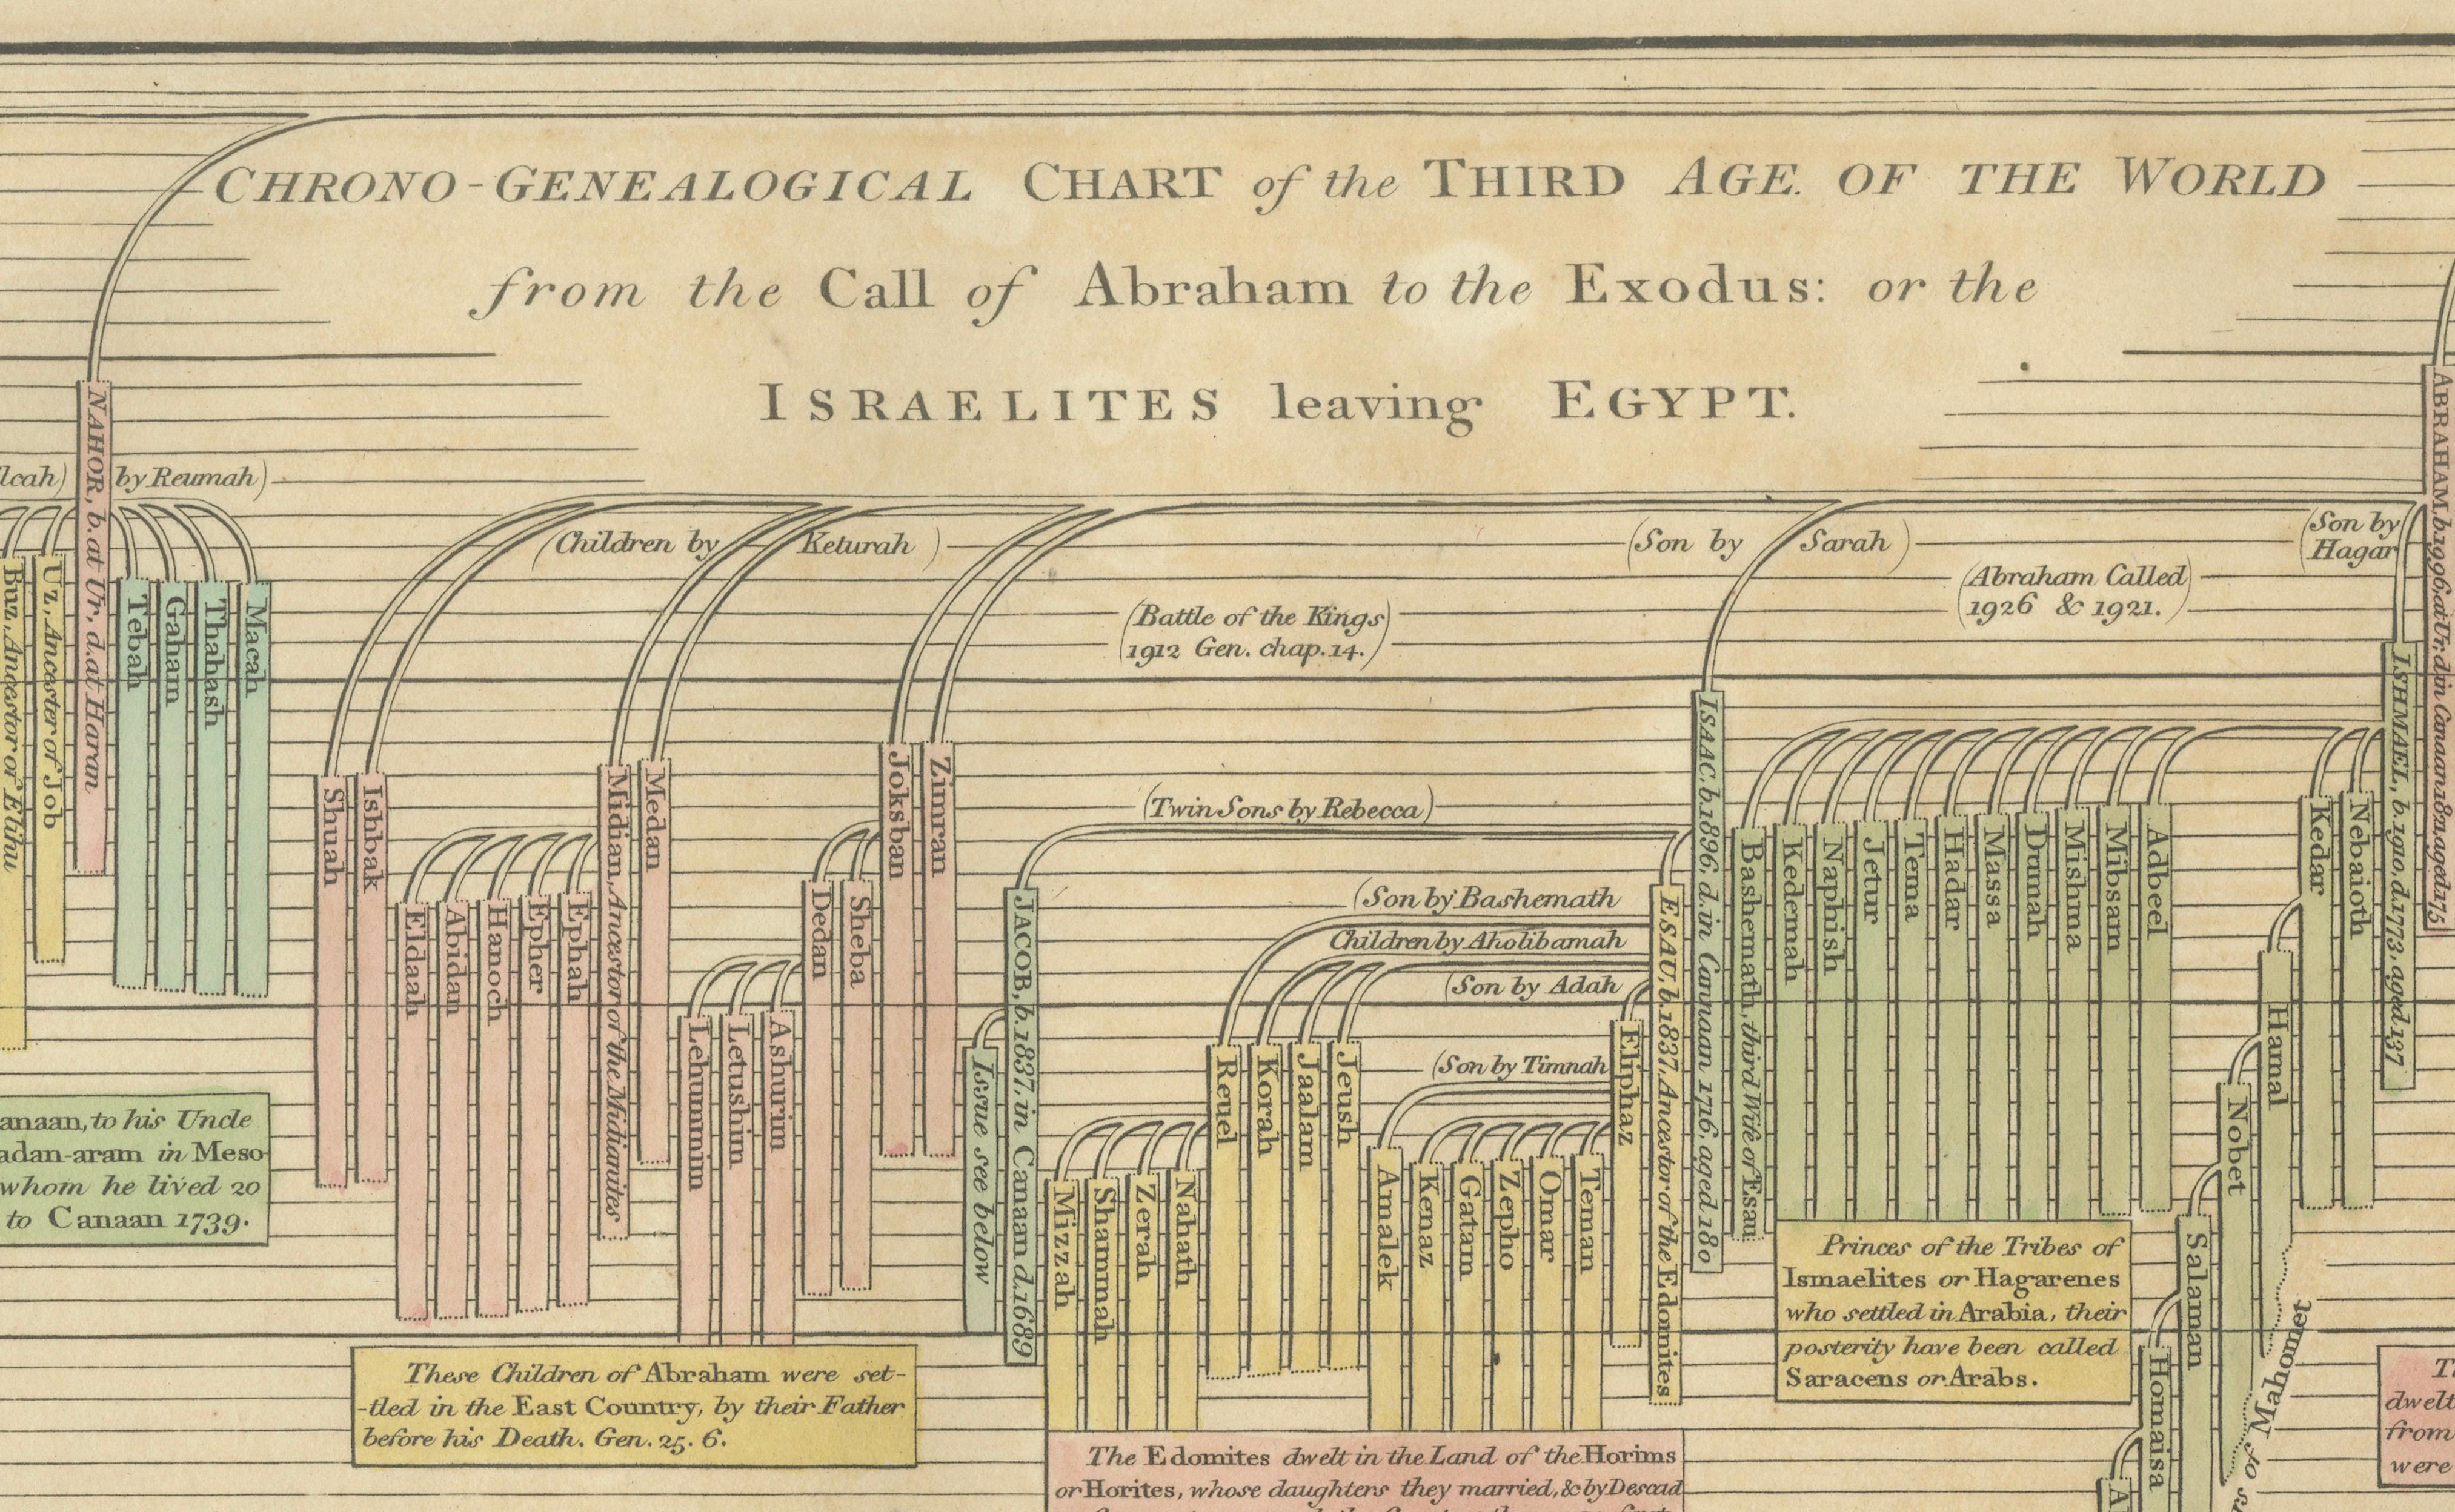 CHRONO-GENEALOGICAL CHART of the THIRD AGE. OF THE WORLD
from the Call of Abraham to the Exodus: or the
ISRAELITES leaving EGYPT.
lcah)
by Reumah)
NAHOR, b. at Ur, d. at Haran
Buz, Ancestor of Elihu
Uz, Ancester of Job
Tebah
Gaham
Thahash
Macah
(Children by Keturah)
(Son by Sarah)
(Son by
Hagar
(Abraham Called
1926 & 1921.)
(Battle of the Kings)
1912 Gen. chap. 14.)
ABRAHAM, b. 1996, at Ur, d. in Canaan 1821, aged 175
ISHMAEL, b. 1910, d. 1773, aged 137
ISAAC, b. 1896, d. in Canaan 1716, aged 180
Shuah
Ishbak
Midian, Ancestor of the Midianites
Medan
Joksban
Zimran
Eldaah
Abidan
Hanoch
Epher
Ephah
Dedan
Sheba
Lehummim
Letushim
Ashurim
(Twin Sons by Rebecca)
JACOB, b. 1837, in Canaan d. 1689
Issue see below
ESAU, b. 1837, Ancestor of the Edomites
(Son by Bashemath
Children by Aholibamah
(Son by Adah
(Son by Timnah
Reuel
Korah
Jaalam
Jeush
Eliphaz
Mizzah
Shammah
Zerah
Nahath
Amalek
Kenaz
Gatam
Zepho
Omar
Teman
Bashemath, third Wife of Esau
Kedemah
Naphish
Jetur
Tema
Hadar
Massa
Dumah
Mishma
Mibsam
Adbeel
Kedar
Nebaioth
Hamal
Nobet
Salaman
Homaisa
A
rs of Mahomet
anaan, to his Uncle
adan-aram in Meso
whom he lived 20
to Canaan 1739.
These Children of Abraham were set-
-tled in the East Country, by their Father
before his Death. Gen. 25. 6.
Princes of the Tribes of
Ismaelites or Hagarenes
who settled in Arabia, their
posterity have been called
Saracens or Arabs.
The Edomites dwelt in the Land of the Horims
or Horites, whose daughters they married, & by Descad
T
dwelt
from
were